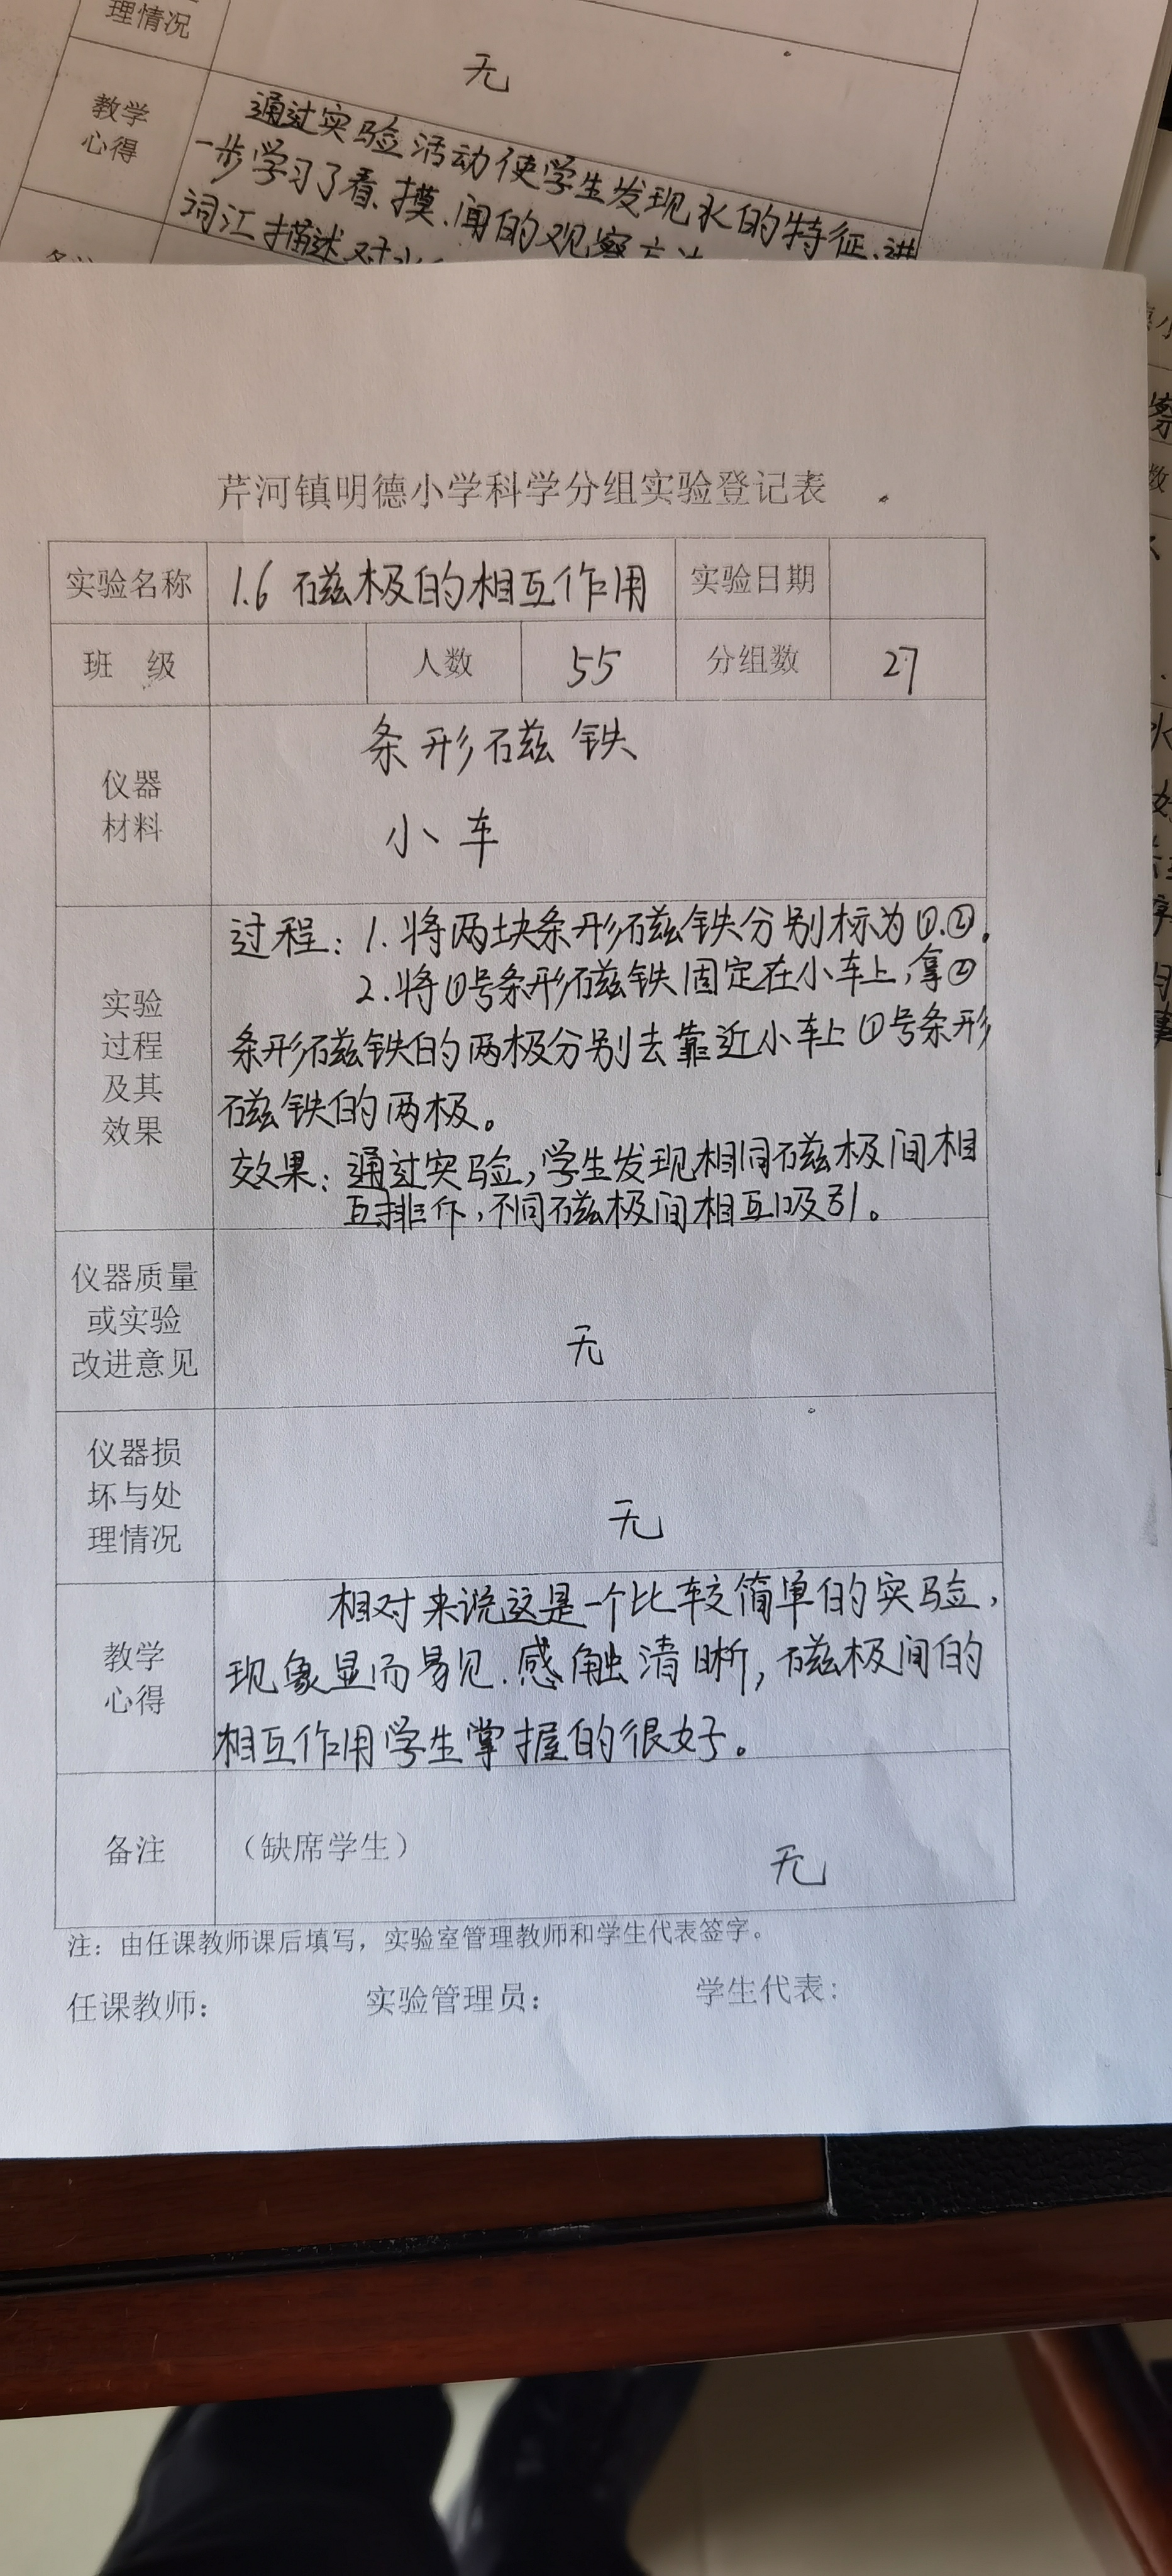 理情况
无
教学
心得
通过实验活动使学生发现水的特征,进
一步学习了看、摸、闻的观察方法
词汇描述对水
芹河镇明德小学科学分组实验登记表
实验名称 1.6 磁极的相互作用 实验日期
班 级 人数 55 分组数 27
仪器
材料
条形磁铁
小车
实验
过程
及其
效果
过程: 1. 将两块条形磁铁分别标为①.②.
2. 将①号条形磁铁固定在小车上,拿②
条形磁铁的两极分别去靠近小车上①号条形
磁铁的两极。
效果: 通过实验,学生发现相同磁极间相
互排斥,不同磁极间相互吸引。
仪器质量
或实验
改进意见
无
仪器损
坏与处
理情况
无
教学
心得
相对来说这是一个比较简单的实验,
现象显而易见.感触清晰,磁极间的
相互作用学生掌握的很好。
备注 (缺席学生) 无
注:由任课教师课后填写,实验室管理教师和学生代表签字。
任课教师: 实验管理员: 学生代表: